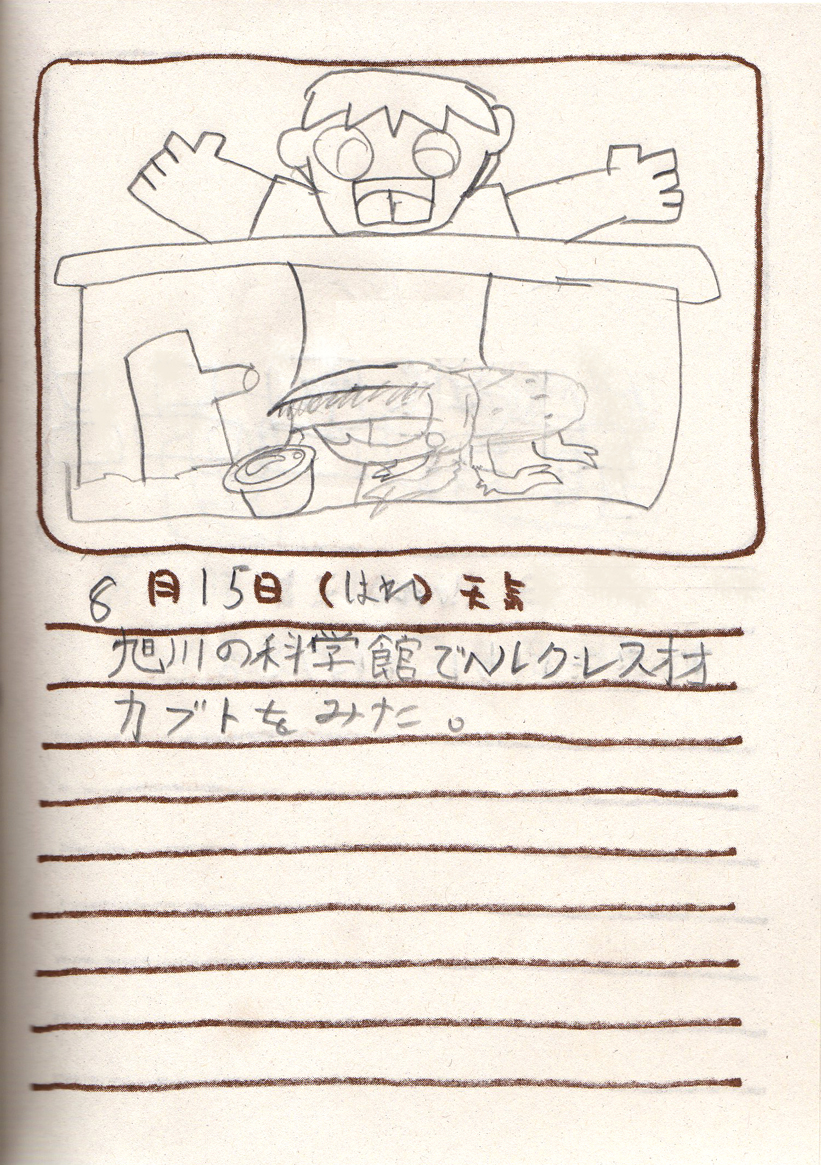 8月15日（はれ）天気
旭川の科学館でヘルクレスオオ
カブトをみた。